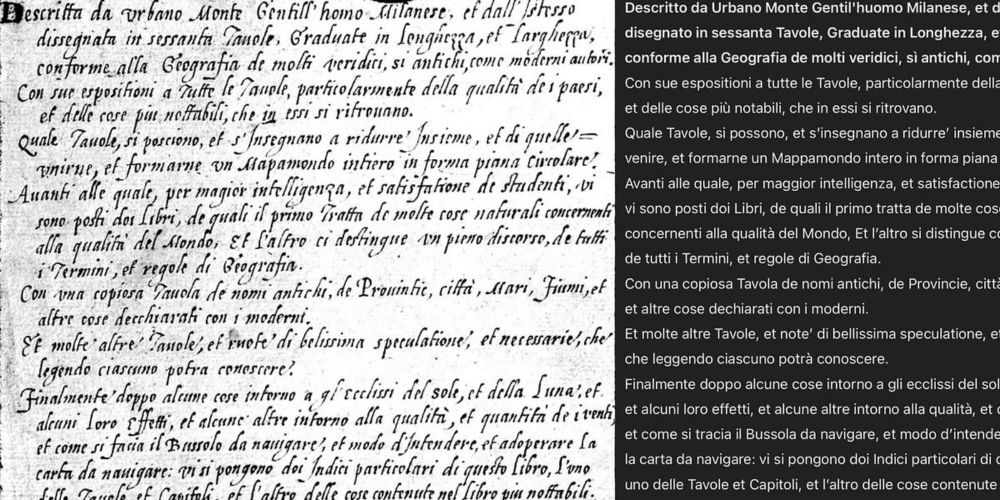 Descritta da urbano Monte Gentill'homo Milanese, et dall'istesso
dissegnata in sessanta Tauole, Graduate in Longhezza, et Larghezza,
conforme alla Geografia de molti veridici, si antichi, come moderni autori.
Con sue espositioni a Tutte le Tauole, particolarmente della qualità de i paesi,
et delle cose piu nottabili, che in essi si ritrovano.
Quale Tauole, si posciono, et s'Insegnano a ridurre Insieme, et di quelle
unirne, et formarne un Mapamondo intiero in forma piana circolare.
Avanti alle quale, per magior intelligenza, et satisfatione de studenti, vi
sono posti doi Libri, de quali il primo Tratta de molte cose naturali concernenti
alla qualità del Mondo, Et l'altro ci destingue un pieno discorso, de tutti
i Termini, et regole di Geografia.
Con una copiosa Tauola de nomi antichi, de Provintie, città, Mari, Fiumi, et
altre cose decchiarati con i moderni.
Et molte altre Tauole, et ruote di belissima speculatione, et necessarie, che
legendo ciascuno potra conoscere.
Finalmente doppo alcune cose intorno a gl'ecclissi del sole, et della Luna, et
alcuni Loro Effetti, et alcune altre intorno alla qualità, et quantità de i venti
et come si facia il Bussolo da navigare, et modo d'Intendere, et adoperare La
carta da navigare: vi si pongono doi Indici particolari di questo Libro, L'uno
delle Tauole et Capitoli, et L'altro delle cose contenute nel Libro piu nottabili.
Descritto da Urbano Monte Gentil'huomo Milanese, et d
disegnato in sessanta Tavole, Graduate in Longhezza, e
conforme alla Geografia de molti veridici, sì antichi, com
Con sue espositioni a tutte le Tavole, particolarmente della
et delle cose più notabili, che in essi si ritrovano.
Quale Tavole, si possono, et s'insegnano a ridurre' insieme
venire, et formarne un Mappamondo intero in forma piana
Avanti alle quale, per maggior intelligenza, et satisfactione
vi sono posti doi Libri, de quali il primo tratta de molte cos
concernenti alla qualità del Mondo, Et l'altro si distingue co
de tutti i Termini, et regole di Geografia.
Con una copiosa Tavola de nomi antichi, de Provincie, citt
et altre cose dechiarati con i moderni.
Et molte altre Tavole, et note' di bellissima speculatione, e
che leggendo ciascuno potrà conoscere.
Finalmente doppo alcune cose intorno a gli ecclissi del sol
et alcuni loro effetti, et alcune altre intorno alla qualità, et
et come si tracia il Bussola da navigare, et modo d'intende
la carta da navigare: vi si pongono doi Indici particolari di
uno delle Tavole et Capitoli, et l'altro delle cose contenute